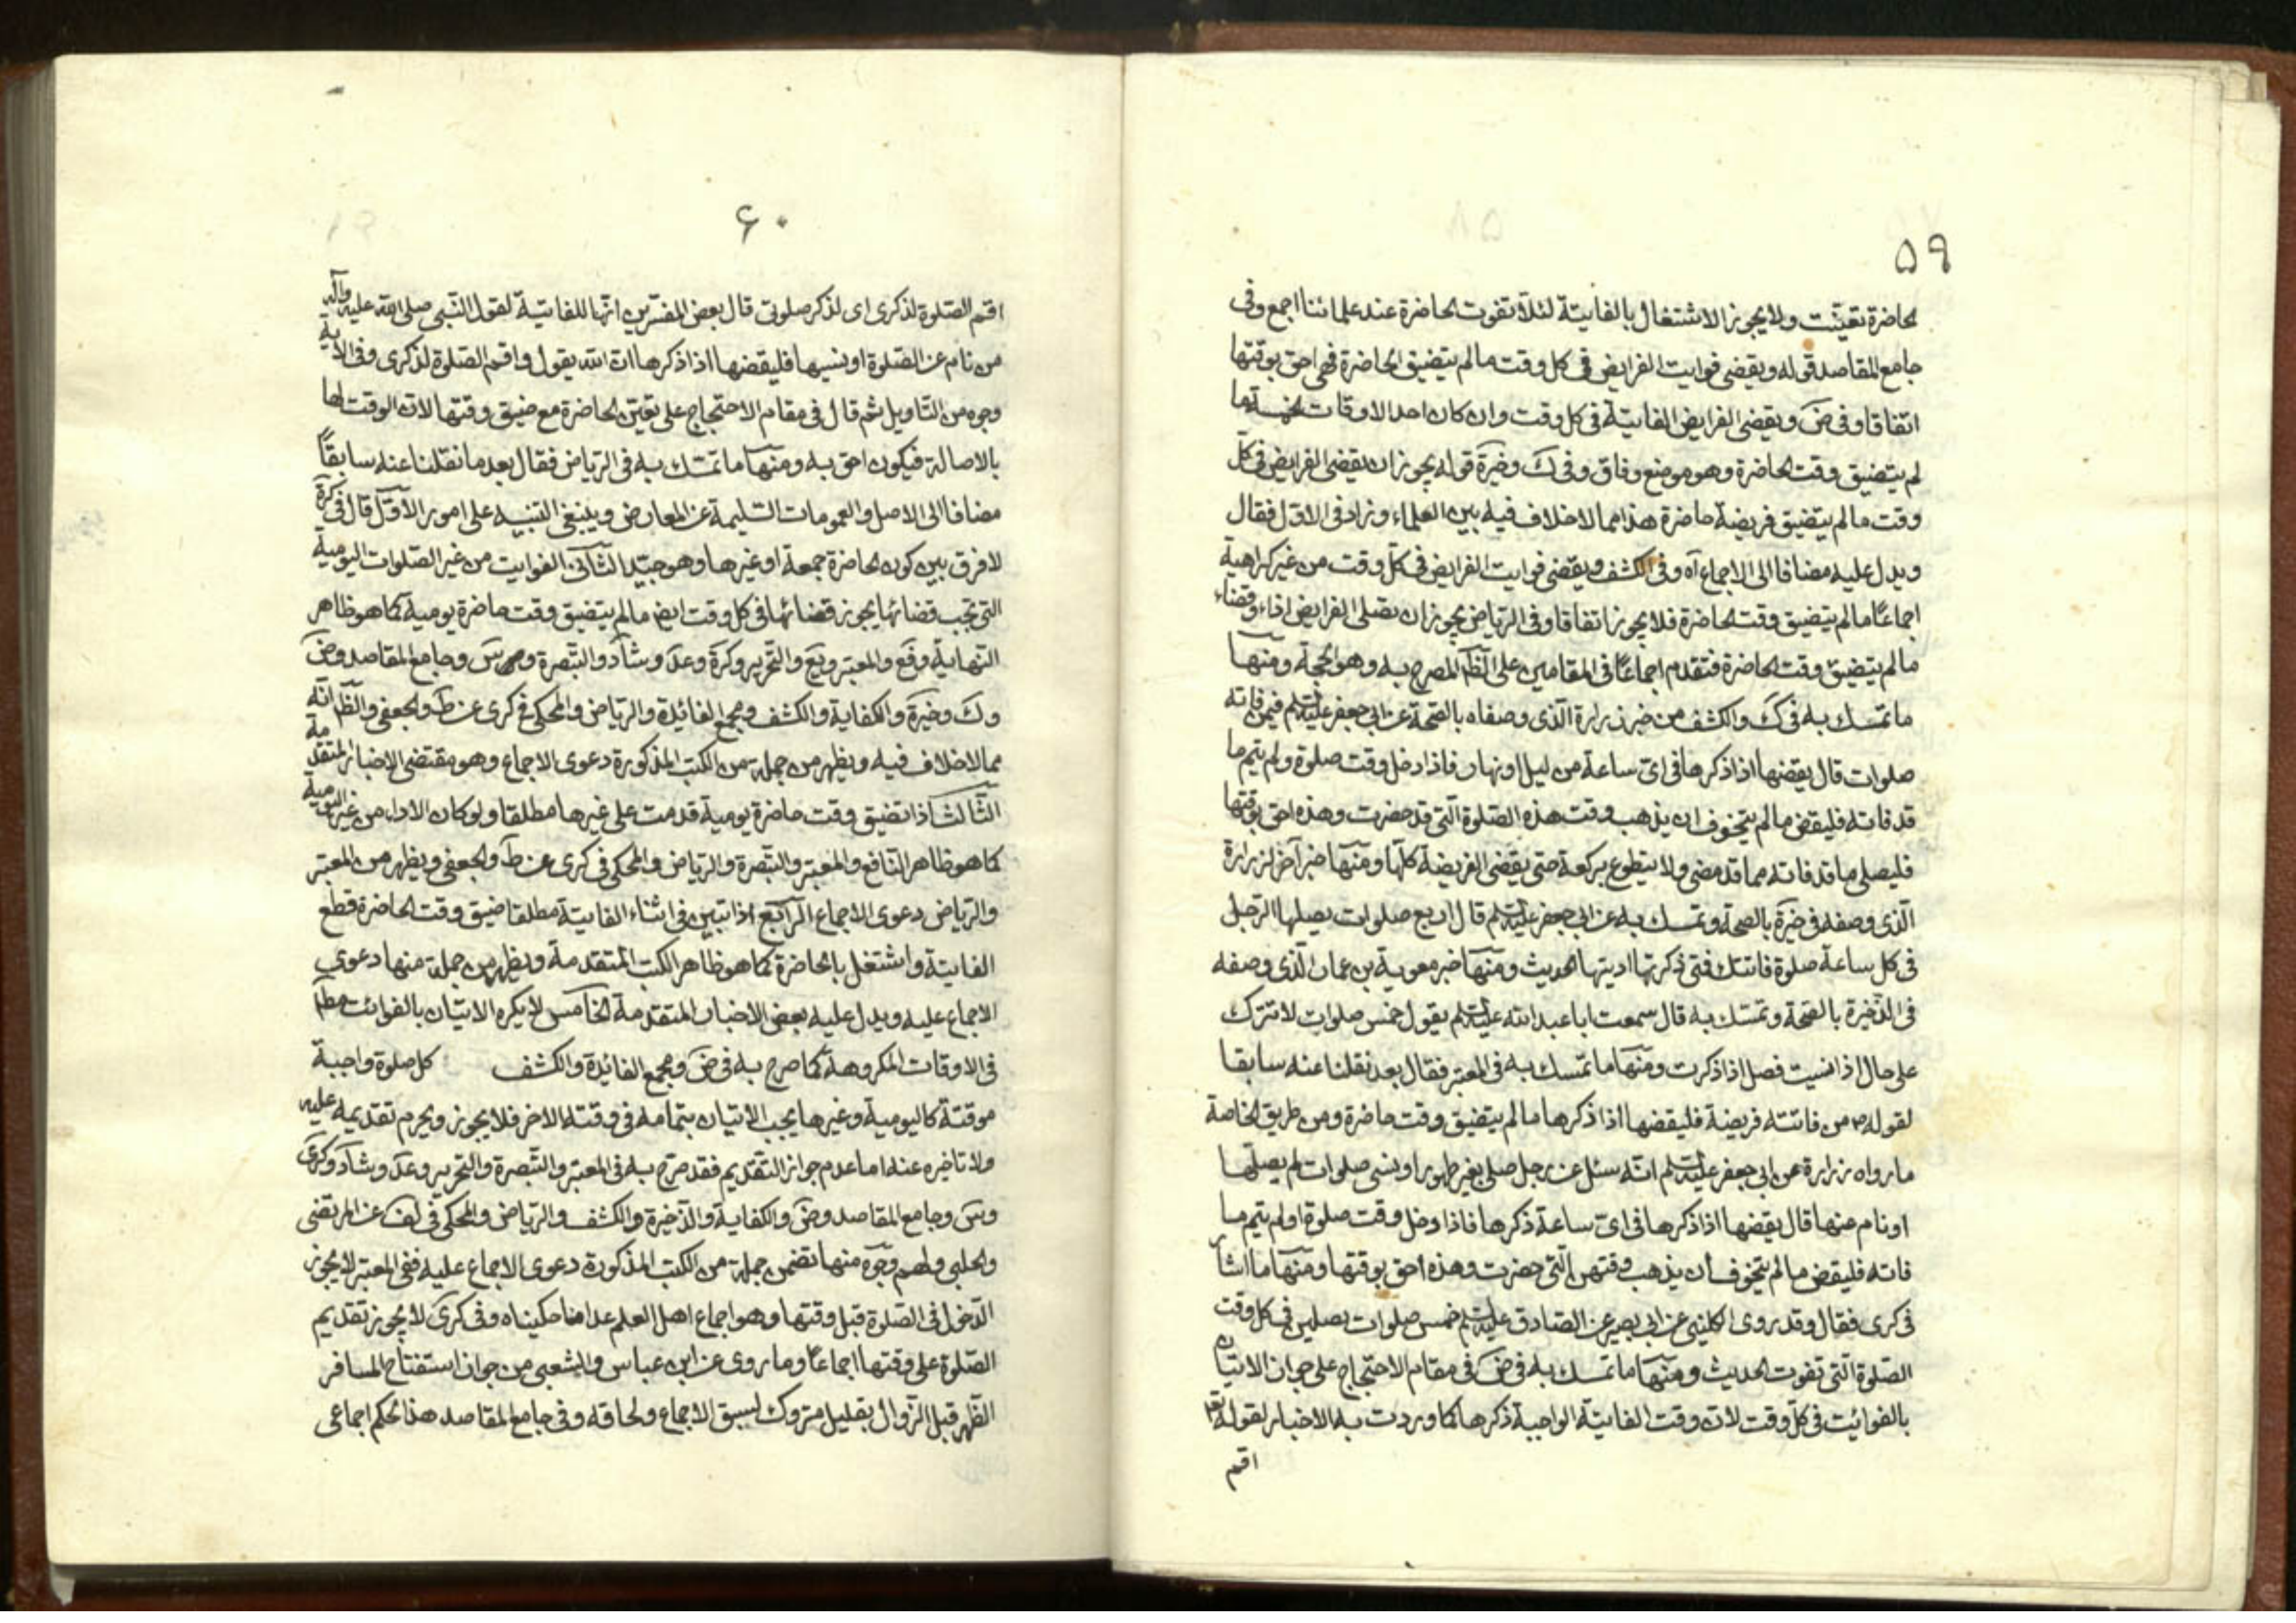 ۵۹
لحاضرة تعيّنت ولا يجوز الاشتغال بالفايتة لئلّا تفوت لحاضرة عند علمائنا اجمع وفى
جامع المقاصد قوله ويقضى فوايت الفرايض فى كل وقت ما لم يتضيق الحاضرة فهى احق بوقتها
اتفاقا وفى ض ويقضى الفرايض الفايتة فى كل وقت وان كان احد الاوقات الخمسة ما
لم يتضيق وقت لحاضرة وهو موضع وفاق وفى ك وخيرة قوله يجوز ان يقضى الفرايض فى كل
وقت ما لم يتضيق فريضة حاضرة هذا مما لا خلاف فيه بين العلماء وزاد فى الاول فقال
ويدل عليه مضافا الى الاجماع آه وفى الكشف ويقضى فوايت الفرايض فى كلّ وقت من غير كراهية
اجماعًا ما لم يتضيق وقت لحاضرة فلا يجوز اتفاقا وفى الرياض يجوز ان يصلى الفرايض اداء وقضاء
ما لم يتضيق وقت لحاضرة فتقدم اجماعًا فى المقامين على الظ المصرح به وهو الحجة ومنها
ما تمسك به فى ك والكشف من خبر زرارة الذى وصفاه بالصحة عن ابى جعفر عليه السلم فيمن فاته
صلوات قال يقضها اذا ذكرها فى اىّ ساعة من ليل او نهار فاذا دخل وقت صلوة ولم يتم ما
قد فاته فليقض ما لم يتخوف ان يذهب وقت هذه الصلوة الّتى قد حضرت وهذه احق بوقتها
فليصلى ما قد فاته مما قد مضى ولا يتطوع بركعة حتى يقضى الفريضة كلّها ومنها خبر آخر لزرارة
الّذى وصفه فى خيرة بالصحة وتمسك به عن ابى جعفر عليه السلم قال اربع صلوات يصليها الرّجل
فى كل ساعة صلوة فاتتك فمتى ذكرتها اديتها الحديث ومنها خبر معوية بن عمار الّذى وصفه
فى الذّخيرة بالصحة وتمسّك به قال سمعت ابا عبد الله عليه السلم يقول خمس صلوات لا تترك
على حال اذا نسيت فصل اذا ذكرت ومنها ما تمسك به فى المعتبر فقال بعد نقلنا عنه سابقا
لقوله ص من فاتته فريضة فليقضها اذا ذكرها ما لم يتضيق وقت حاضرة ومن طريق الخاصة
ما رواه زرارة عن ابى جعفر عليه السلم انّه سئل عن رجل صلى بغير طهور او نسى صلوات لم يصلّها
او نام منها قال يقضها اذا ذكرها فى اىّ ساعة ذكرها فاذا دخل وقت صلوة او لم يتم ما
فاته فليقض ما لم يتخوف ان يذهب وقتهن الّتى حضرت وهذه احق بوقتها ومنها ما اشار
فى كرى فقال وقد روى الكلينى عن ابى بصير عن الصادق عليه السلم خمس صلوات يصلين فى كل وقت
الصّلوة الّتى تفوت لحديث ومنها ما تمسك به فى ض فى مقام الاحتجاج على جواز الاتيان
بالفوائت فى كلّ وقت لان وقت الفايتة الواجبة ذكرها كما وردت به الاخبار لقوله تع
اقم
۶۰
اقم الصّلوة لذكرى اى لذكر صلوتى قال بعض المفسّرين انّها للفايتة لقول النّبى صلى الله عليه وآله
من نام عن الصّلوة او نسيها فليقضها اذا ذكرها ان الله يقول واقم الصّلوة لذكرى وفى الآية
وجوه من التّاويل ثم قال فى مقام الاحتجاج على تعيّن لحاضرة مع ضيق وقتها لان الوقت لها
بالاصالة فيكون احق به ومنها ما تمسّك به فى الرياض فقال بعد ما نقلنا عنه سابقًا
مضافا الى الاصل والعمومات السّليمة عن المعارض وينبغى التنبيه على امور الأوّل قال فى كرة
لا فرق بين كون لحاضرة جمعة او غيرها وهو جيّد الثّانى الفوايت من غير الصّلوات اليومية
التى تجب قضائها يجوز قضائها فى كل وقت ايض ما لم يتضيق وقت حاضرة يومية كما هو ظاهر
النّهاية وفع والمعتبر ويع والتحرير وكرة وعد وشاد والتّبصرة و س وجامع المقاصد وض
وك وخيرة والكفاية والكشف ومجمع الفائدة والرياض والمحكى فى كرى عن ط ولجعفى والظ انّه
مما لا خلاف فيه ويظهر من جملة من الكتب المذكورة دعوى الاجماع وهو مقتضى الاخبار المتقدمة
الثّالث اذا تضيق وقت حاضرة يومية قدمت على غيرها مطلقا ولو كان الاداء من غير اليومية
كما هو ظاهر النّافع والمعتبر والتّبصرة والرياض والمحكى فى كرى عن ط ولجعفى ويظهر من المعتبر
والرّياض دعوى الاجماع الرّابع اذا تبيّن فى اثناء الفايتة مطلقا ضيق وقت لحاضرة قطع
الفايتة واشتغل بالحاضرة كما هو ظاهر الكتب المتقدمة ويظهر من جملة منها دعوى
الاجماع عليه ويدل عليه بعض الاخبار المتقدمة الخامس لا يكره الاتيان بالفوائت مطلقا
فى الاوقات المكروهة كما صرح به فى ض ومجمع الفائدة والكشف كل صلوة واجبة
موقتة كاليومية وغيرها يجب الاتيان بتمامه فى وقته الاخر فلا يجوز ويحرم تقديمه عليه
ولا تاخيره عنه اما عدم جواز التقديم فقد صرّح به فى المعتبر والتّبصرة والتحرير وعد وشاد وكرى
وس وجامع المقاصد وض والكفاية والذّخيرة والكشف والرياض والمحكى فى لف عن المرتضى
ولحلبى ولهم وجوه منها تضمن جملة من الكتب المذكورة دعوى الاجماع عليه ففى المعتبر لا يجوز
الدّخول فى الصّلوة قبل وقتها وهو اجماع اهل العلم عدا ما حكيناه وفى كرى لا يجوز تقديم
الصّلوة على وقتها اجماعًا وما روى عن ابن عباس والشعبى من جواز استفتاح المسافر
الظّهر قبل الزّوال بقليل متروك لسبق الاجماع ولحاقه وفى جامع المقاصد هذا لحكم اجماعى